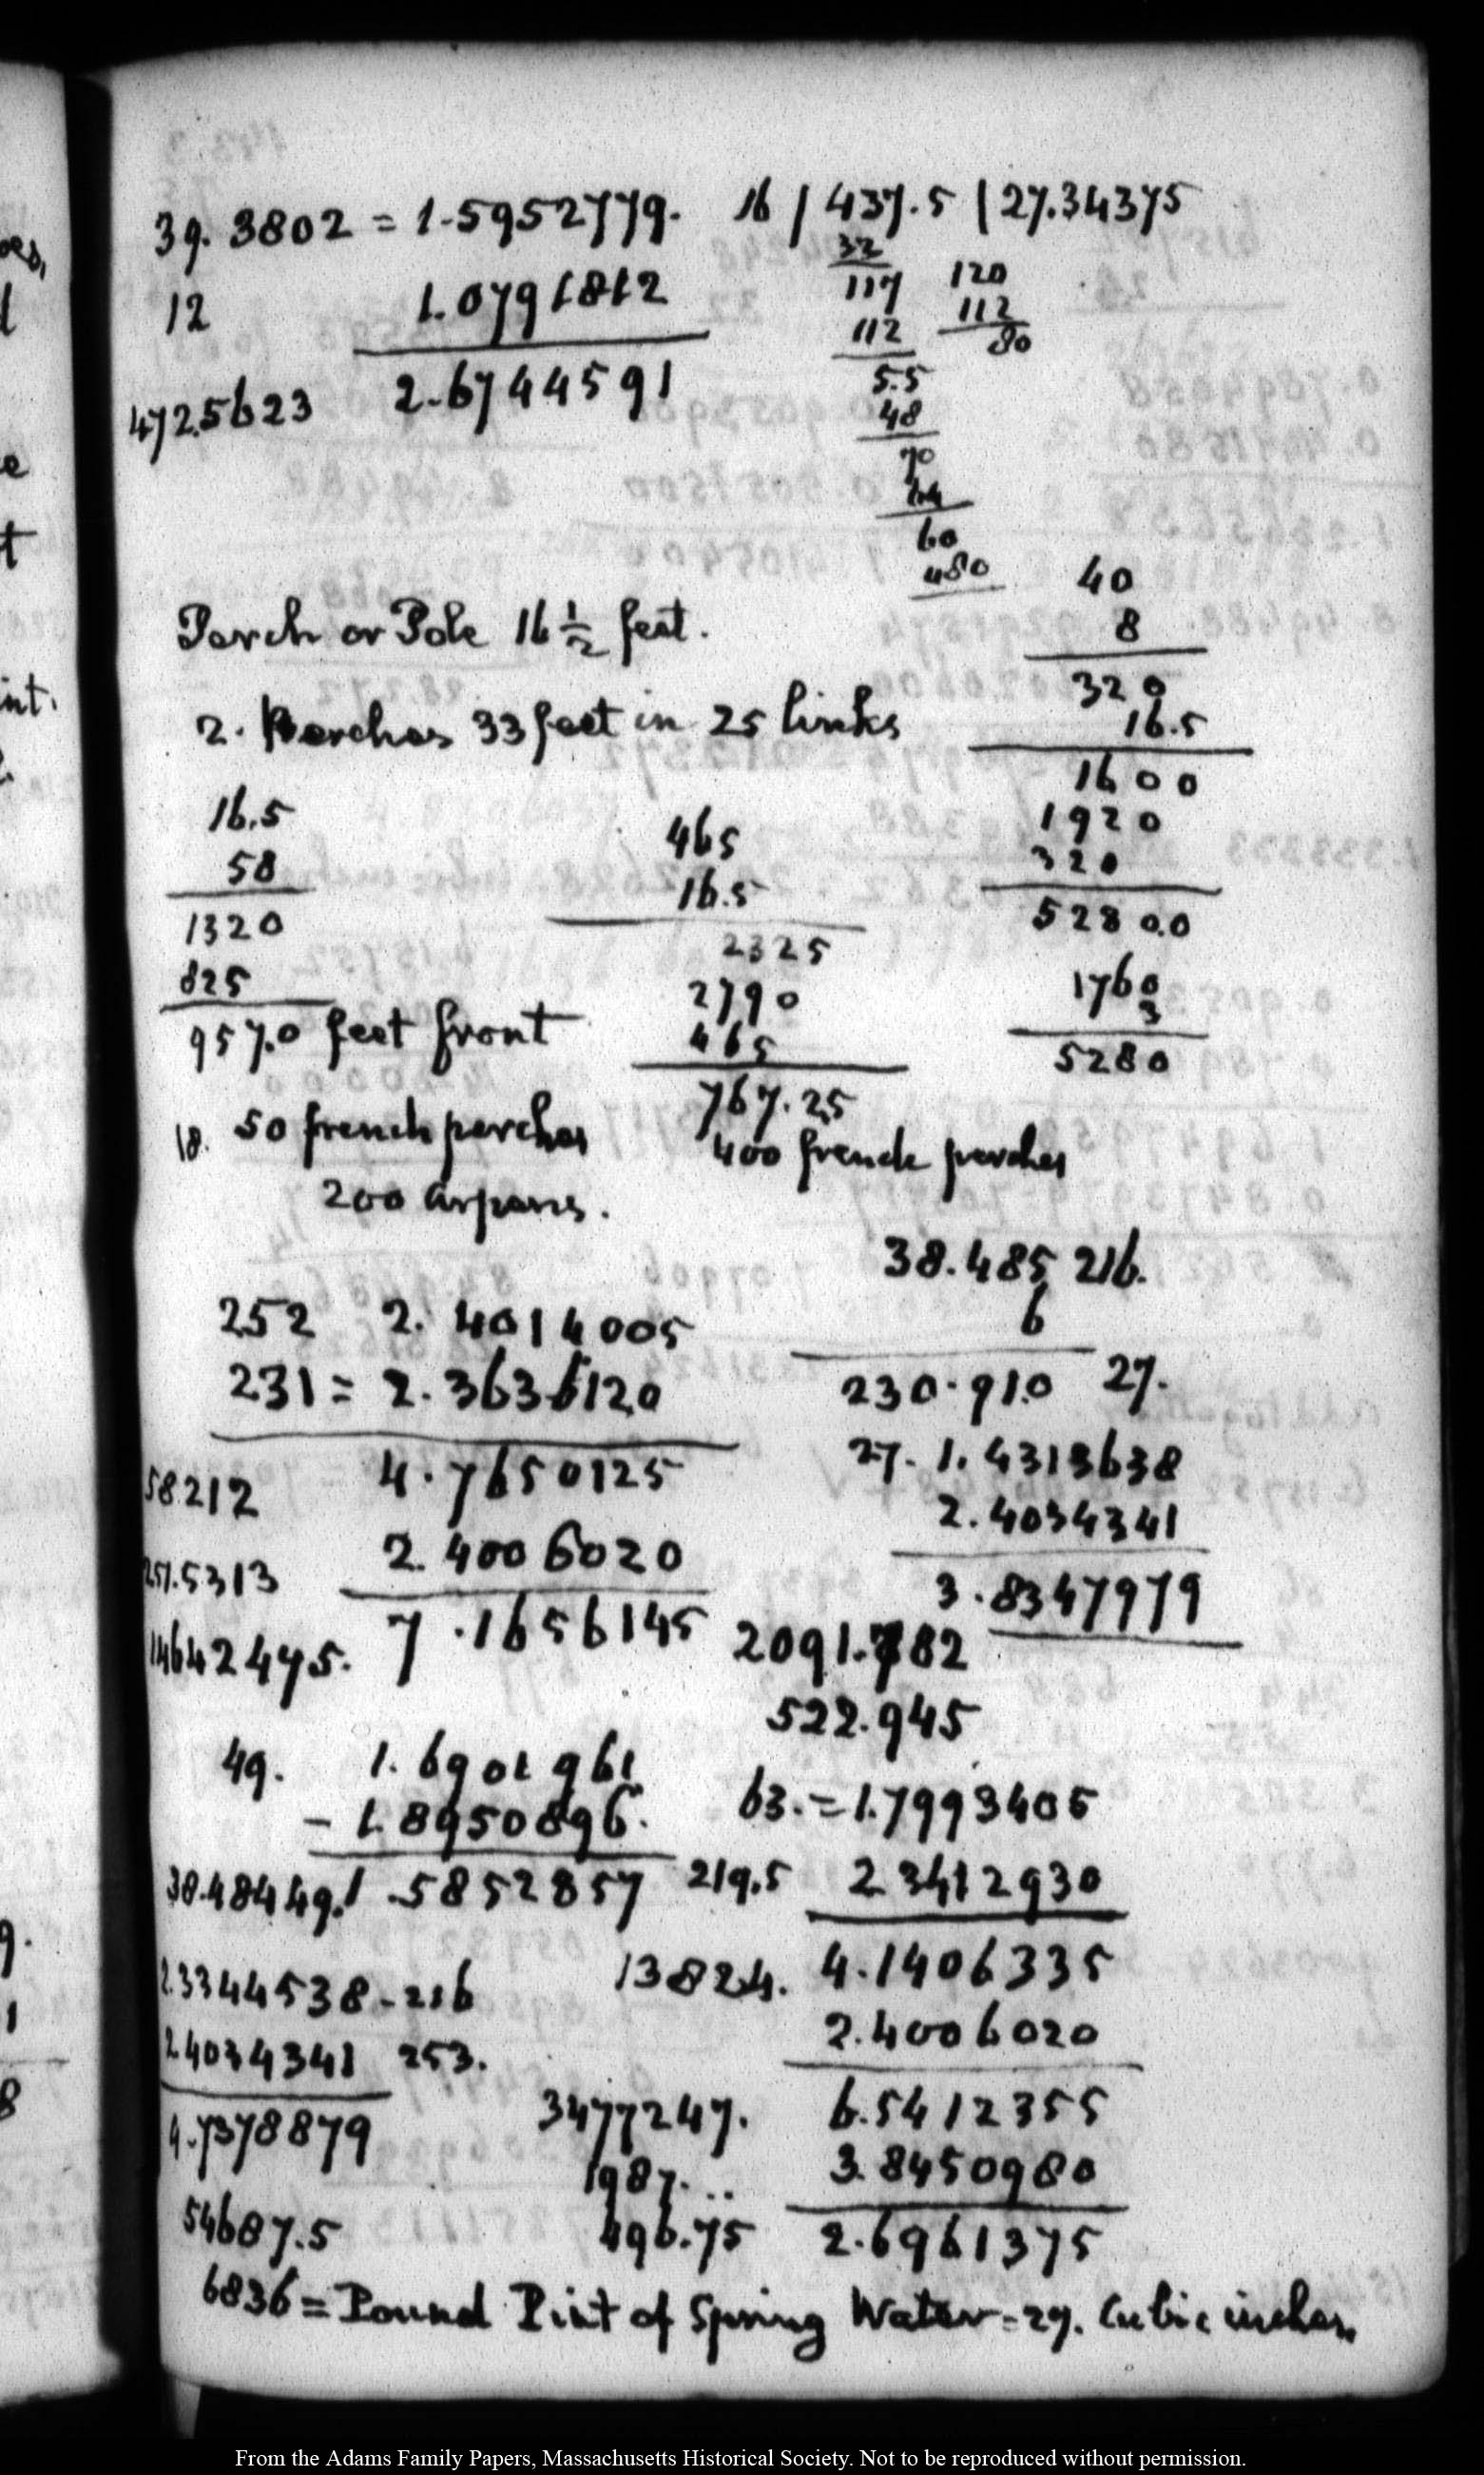 39.3802 = 1.5952779.
12 1.0791812
472.5623 2.6744591
16 / 437.5 | 27.34375
32
117 120
112 112
5.5 80
48
70
64
60
480
Perch or Pole 16 1/2 feet.
2. Perches 33 feet in 25 links
40
8
320
16.5
1600
1920
320
5280.0
1760
3
5280
16.5
58
1320
825
957.0 feet front
465
16.5
2325
2790
465
767.25
18. 50 french perches
200 arpens.
400 french perches
252 2.4014005
231 = 2.3636120
58212 4.7650125
251.5313 2.4006020
14642475. 7.1656145
38.485 216.
6
230.910 27.
27. 1.4313638
2.4034341
3.8347979
2091.782
522.945
49. 1.6901961
- 1.8950896.
38.48449. 1.5852857
2.3344538 - 216
2.4034341 253.
4.7378879
54687.5
63. = 1.7993405
219.5 2.3412930
13824. 4.1406335
2.4006020
3477247. 6.5412355
1987... 3.8450980
496.75 2.6961375
6836 = Pound Pint of Spring Water = 27. Cubic inches.
From the Adams Family Papers, Massachusetts Historical Society. Not to be reproduced without permission.